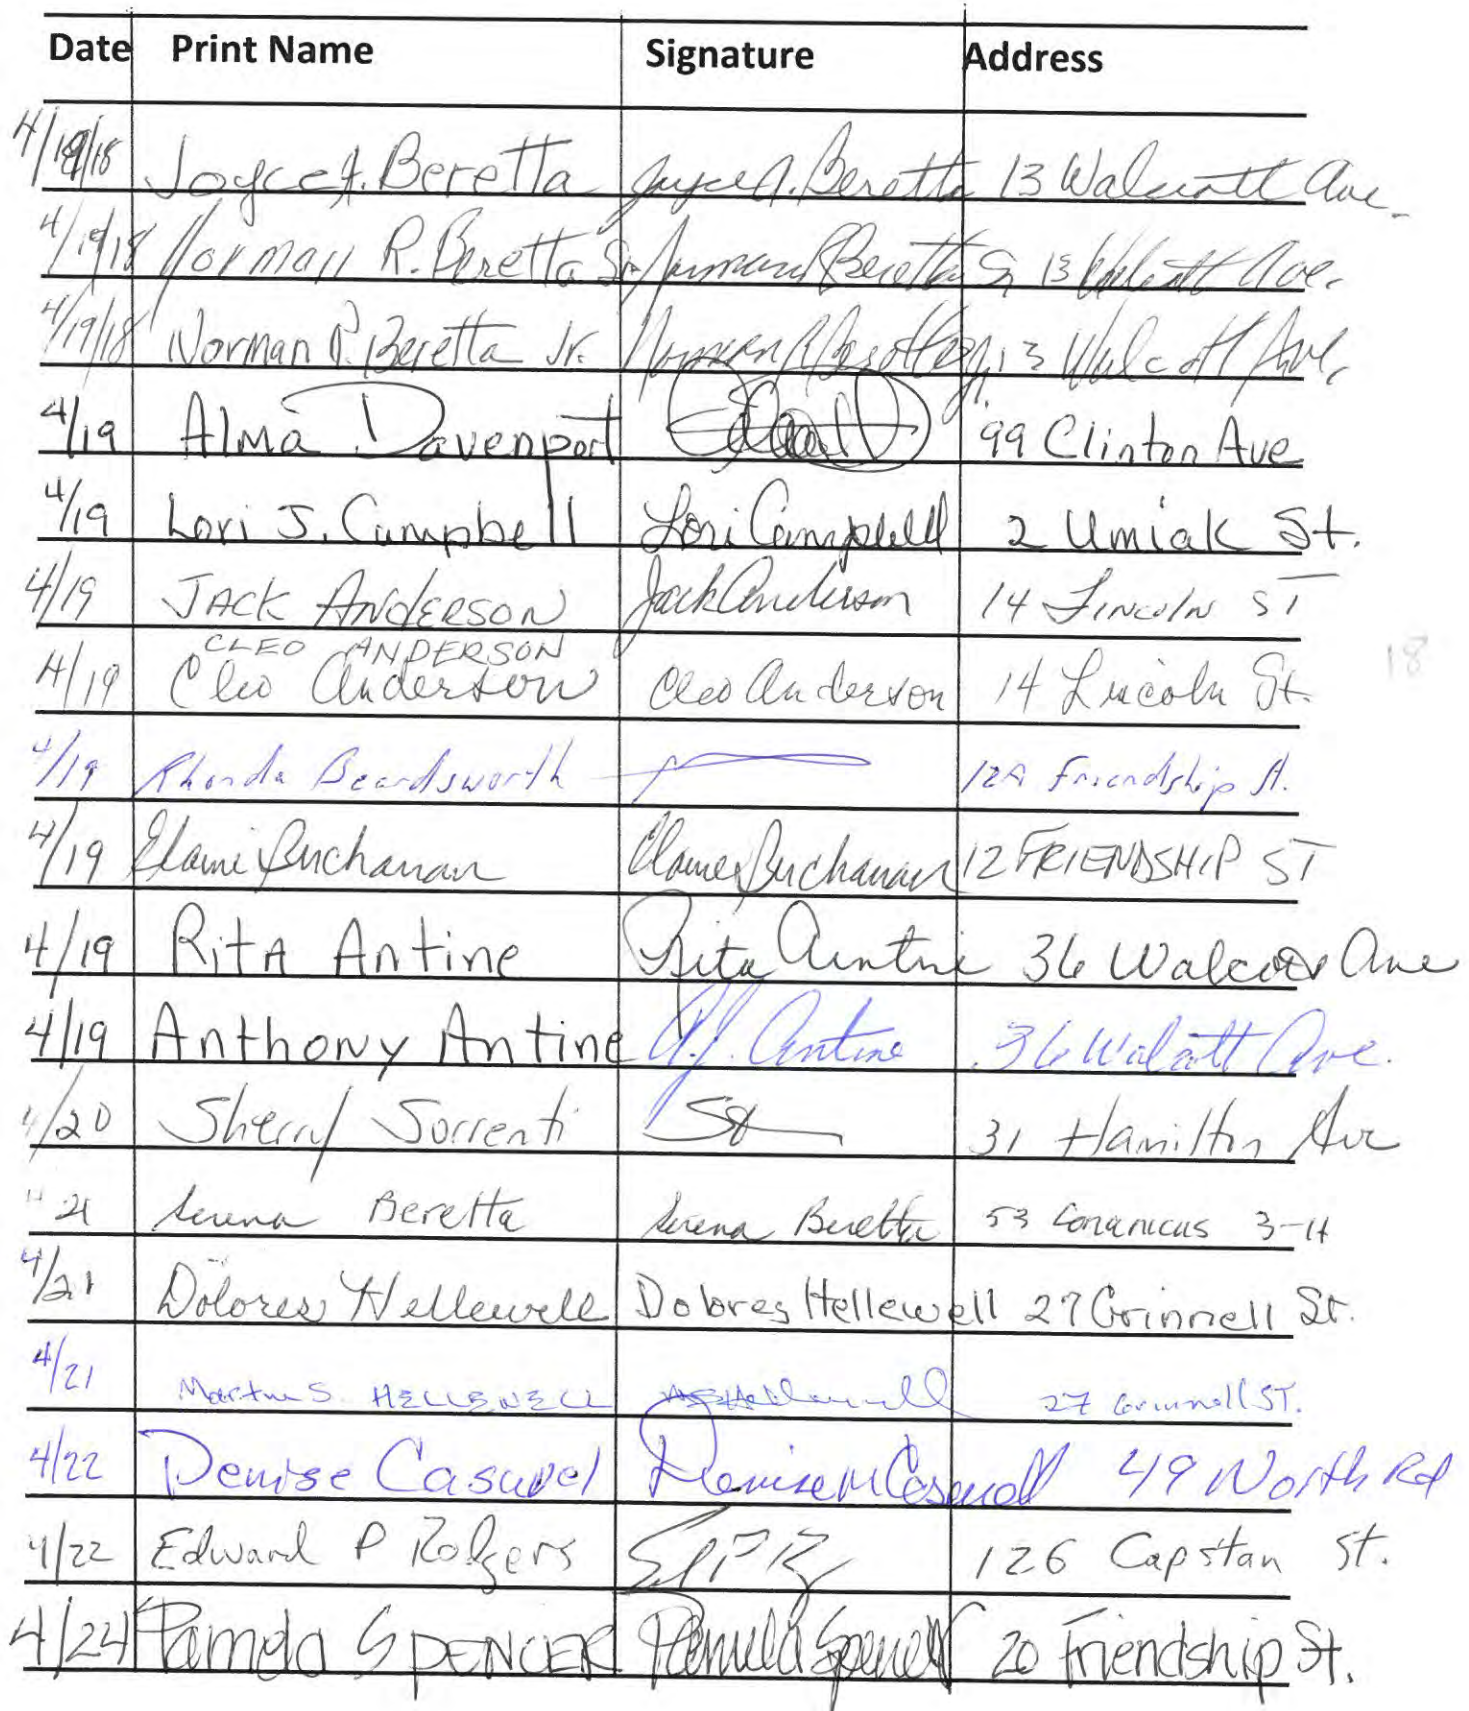 Date Print Name Signature Address
4/19/18 Joyce A. Beretta Joyce A. Beretta 13 Walcott Ave.
4/19/18 Norman R. Beretta Sr. Norman Beretta Sr 13 Walcott Ave.
4/19/18 Norman R. Beretta Jr. Norman R Beretta Jr. 13 Walcott Ave.
4/19 Alma Davenport 99 Clinton Ave
4/19 Lori J. Campbell Lori Campbell 2 Umiak St.
4/19 JACK ANDERSON Jack Anderson 14 LINCOLN ST
CLEO ANDERSON
4/19 Cleo Anderson Cleo Anderson 14 Lincoln St.
18
4/19 Rhonda Beardsworth 12A Friendship St.
4/19 Elaine Buchanan Elaine Buchanan 12 FRIENDSHIP ST
4/19 RitA Antine Rita Antine 36 Walcott Ave
4/19 Anthony Antine A.J. Antine 36 Walcott Ave.
4/20 Sherry Sorrenti 31 Hamilton Ave
4 21 Serena Beretta Serena Beretta 53 Conanicus 3-H
4/21 Dolores Hellewell Dolores Hellewell 27 Grinnell St.
4/21 Martin S. HELLEWELL Hellewell 27 Grinnell ST.
4/22 Denise Caswel Denise M Caswell 49 North Rd
4/22 Edward P Rodgers EPR 126 Capstan St.
4/24 Pamela SPENCER Pamela Spencer 20 Friendship St.